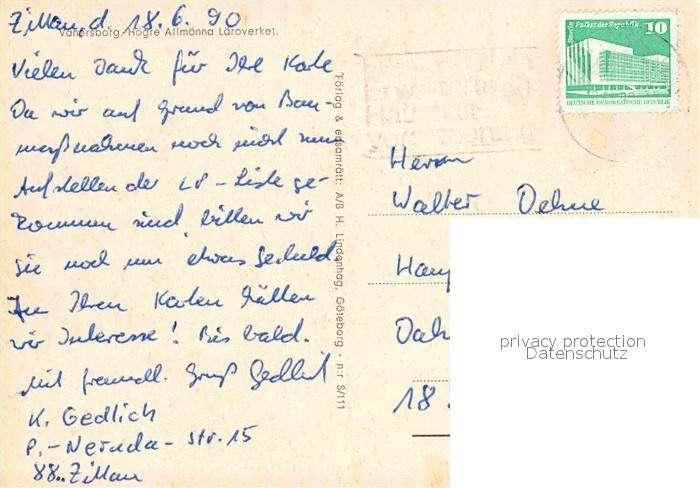 Zittau, d. 18.6.90
Vänersborg. Högre Allmänna Läroverket.
Vielen Dank für Ihre Karte
Da wir auf Grund von Bau-
maßnahmen noch nicht zum
Aufstellen der LP-Liste ge-
kommen sind, bitten wir
Sie noch um etwas Geduld.
An Ihren Karten hätten
wir Interesse! Bis bald.
Mit freundl. Gruß Gedlich
K. Gedlich
P.-Neruda-Str. 15
88.. Zittau
Förlag & ensamrätt: A/B H. Lindenhag, Göteborg - n:r S/111
Berlin Palast der Republik
10
DEUTSCHE DEMOKRATISCHE REPUBLIK
Herrn
Walter Dehne
Haup
Dah
18
privacy protection
Datenschutz